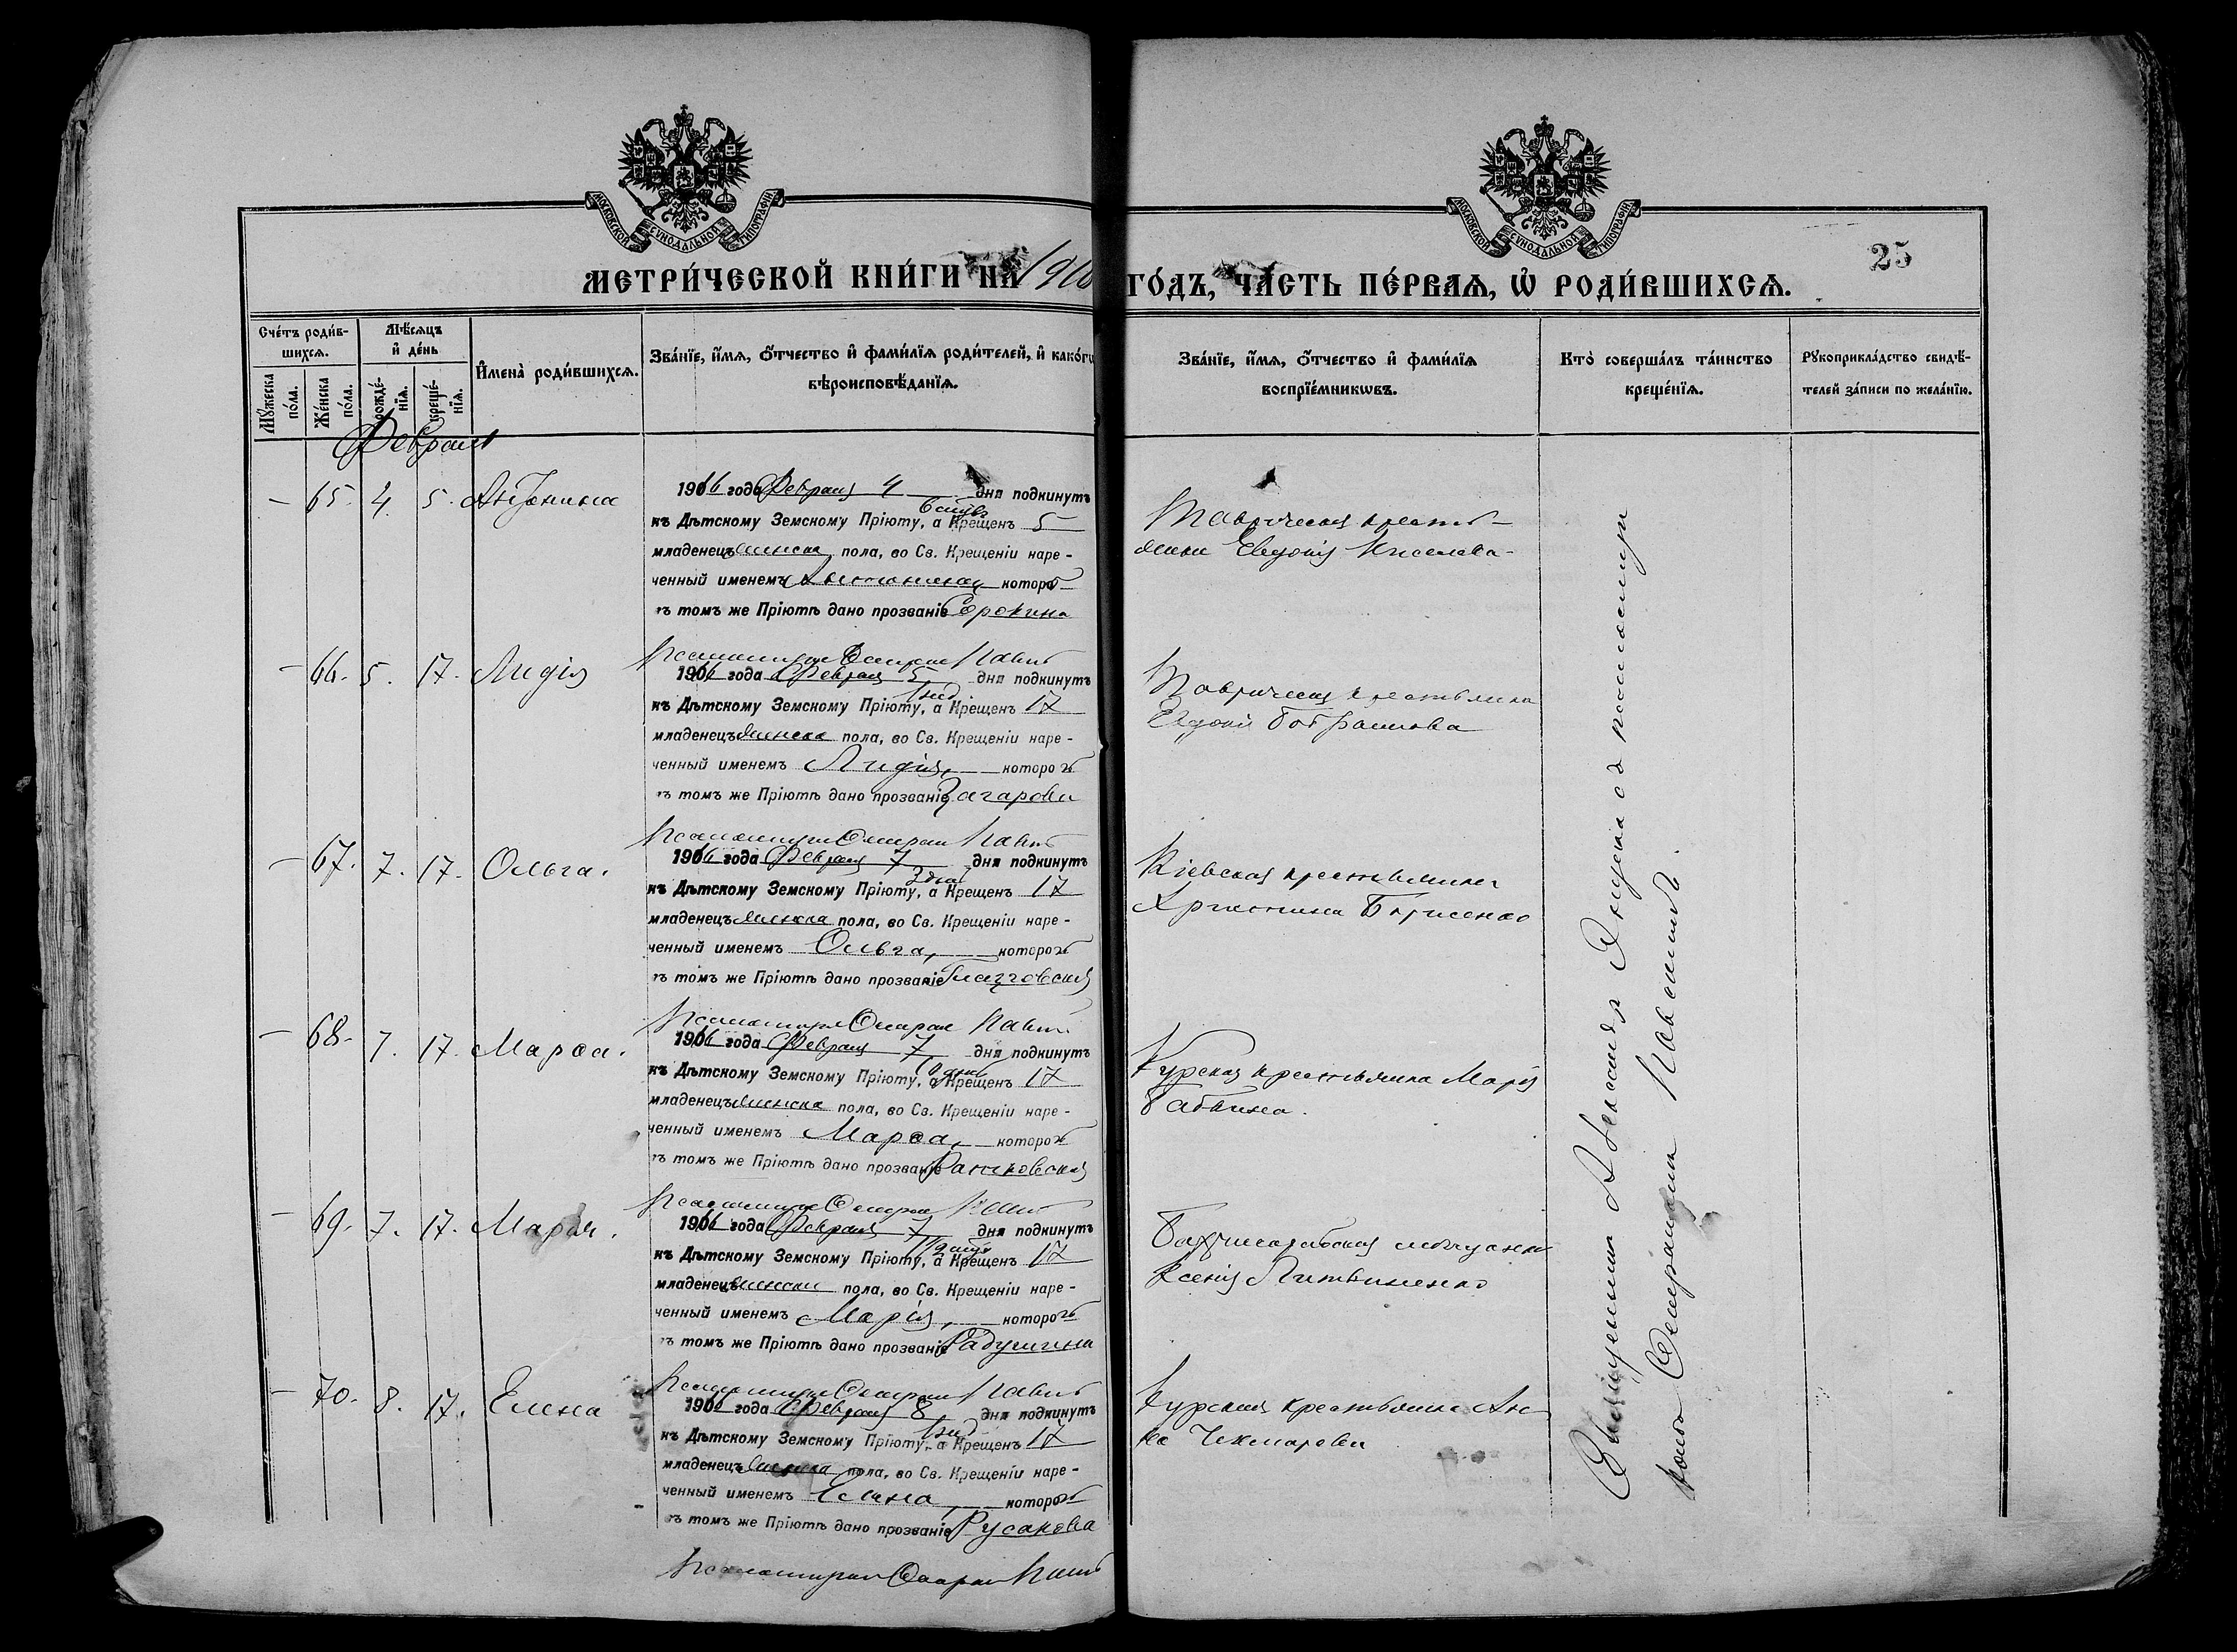 МОСКОВСКОЙ СУНОДАЛЬНОЙ ТИПОГРАФІИ
МОСКОВСКОЙ СУНОДАЛЬНОЙ ТИПОГРАФІИ
25
МЕТРИ́ЧЕСКОЙ КНИ́ГИ НА 1916 ГО́ДЪ, ЧА́СТЬ ПЕ́РВАѦ, Ѡ҆ РОДИ́ВШИХСѦ.
Сче́тъ роди́в-
шихсѧ.
Мꙋ́жеска по́ла.
Же́нска по́ла.
Мѣ́сѧцъ
и҆ де́нь
рожде́-
нїѧ.
креще́-
нїѧ.
И҆мена̀ роди́вшихсѧ.
Зва́нїе, и҆́мѧ, ѻ҆́тчество и҆ фами́лїѧ роди́телей, и҆ како́гѡ
вѣроисповѣ́данїѧ.
Зва́нїе, и҆́мѧ, ѻ҆́тчество и҆ фами́лїѧ
воспрїе́мникѡвъ.
Кто̀ соверша́лъ та́инство
креще́нїѧ.
Рꙋкоприкла́дство свидѣ́-
телей за́писи по жела́нїю.
Февраля
– 65. 4. 5. Антонина
1916 года Февраля 4 дня подкинутъ
къ Дѣтскому Земскому Пріюту, а Крещенъ 5
младенецъ женска пола, во Св. Крещеніи наре-
ченный именемъ Антонина, которой
въ томъ же Пріютѣ дано прозваніе Сорокина
Таврическая крестья-
янка Евдокія Киселева
– 66. 5. 17. Лидія
Псаломщикъ
1916 года Февраля 5 дня подкинутъ
къ Дѣтскому Земскому Пріюту, а Крещенъ 17
младенецъ женска пола, во Св. Крещеніи наре-
ченный именемъ Лидія, которой
въ томъ же Пріютѣ дано прозваніе Захарова
Таврическая крестьянка
Евдокія
– 67. 7. 17. Ольга.
Псаломщикъ
1916 года Февраля 7 дня подкинутъ
къ Дѣтскому Земскому Пріюту, а Крещенъ 17
младенецъ женска пола, во Св. Крещеніи наре-
ченный именемъ Ольга, которой
въ томъ же Пріютѣ дано прозваніе
Кіевская крестьянка
Христина Борисенко
– 68. 7. 17. Марѳа.
Псаломщикъ
1916 года Февраля 7 дня подкинутъ
къ Дѣтскому Земскому Пріюту, а Крещенъ 17
младенецъ женска пола, во Св. Крещеніи наре-
ченный именемъ Марѳа, которой
въ томъ же Пріютѣ дано прозваніе
Курская крестьянка Марія
Бабкина.
– 69. 7. 17. Марія.
Псаломщикъ
1916 года Февраля 7 дня подкинутъ
къ Дѣтскому Земскому Пріюту, а Крещенъ 17
младенецъ женска пола, во Св. Крещеніи наре-
ченный именемъ Марія, которой
въ томъ же Пріютѣ дано прозваніе Радушина
Бахчисарайская мѣщанка
Ксенія Литвиненко
– 70. 8. 17. Елена
Псаломщикъ
1916 года Февраля 8 дня подкинутъ
къ Дѣтскому Земскому Пріюту, а Крещенъ 17
младенецъ женска пола, во Св. Крещеніи наре-
ченный именемъ Елена, которой
въ томъ же Пріютѣ дано прозваніе Русакова
Псаломщикъ
Курская крестьянка Ан-
на Чекмарова
Священникъ Алексій съ псаломщи-
комъ